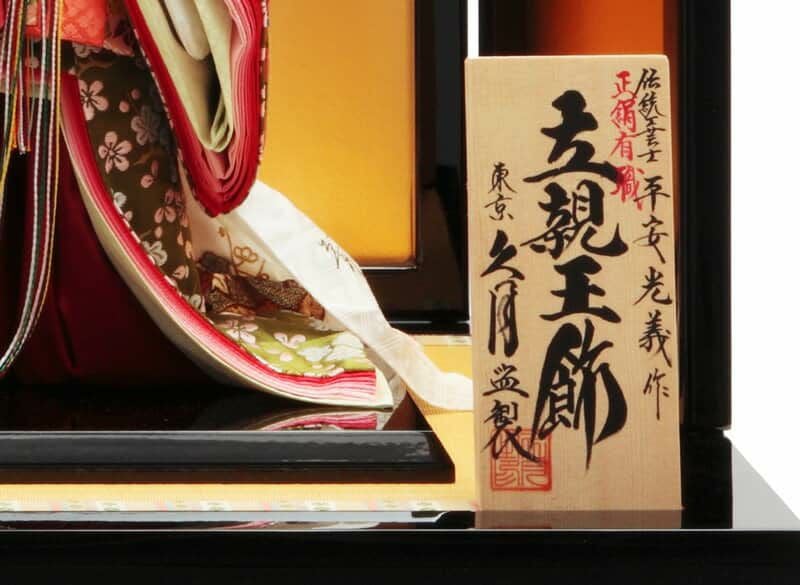 伝統工芸士 平安光義作
正絹有職
立親王飾
東京久月監製